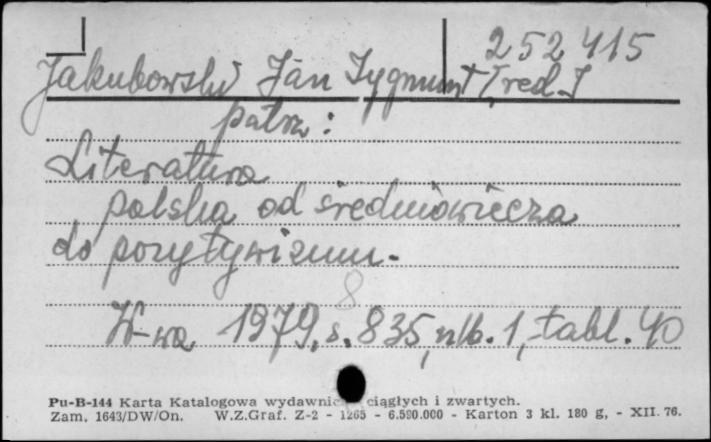 252415
Jakubowski Jan Zygmunt [red.]
patrz:
Literatura
polska od średniowiecza
do pozytywizmu.
8
W-wa 1979, s. 835, nlb. 1, tabl. 40
Pu-B-144 Karta Katalogowa wydawnic ciągłych i zwartych.
Zam. 1643/DW/On. W.Z.Graf. Z-2 - 1265 - 6.590.000 - Karton 3 kl. 180 g, - XII. 76.